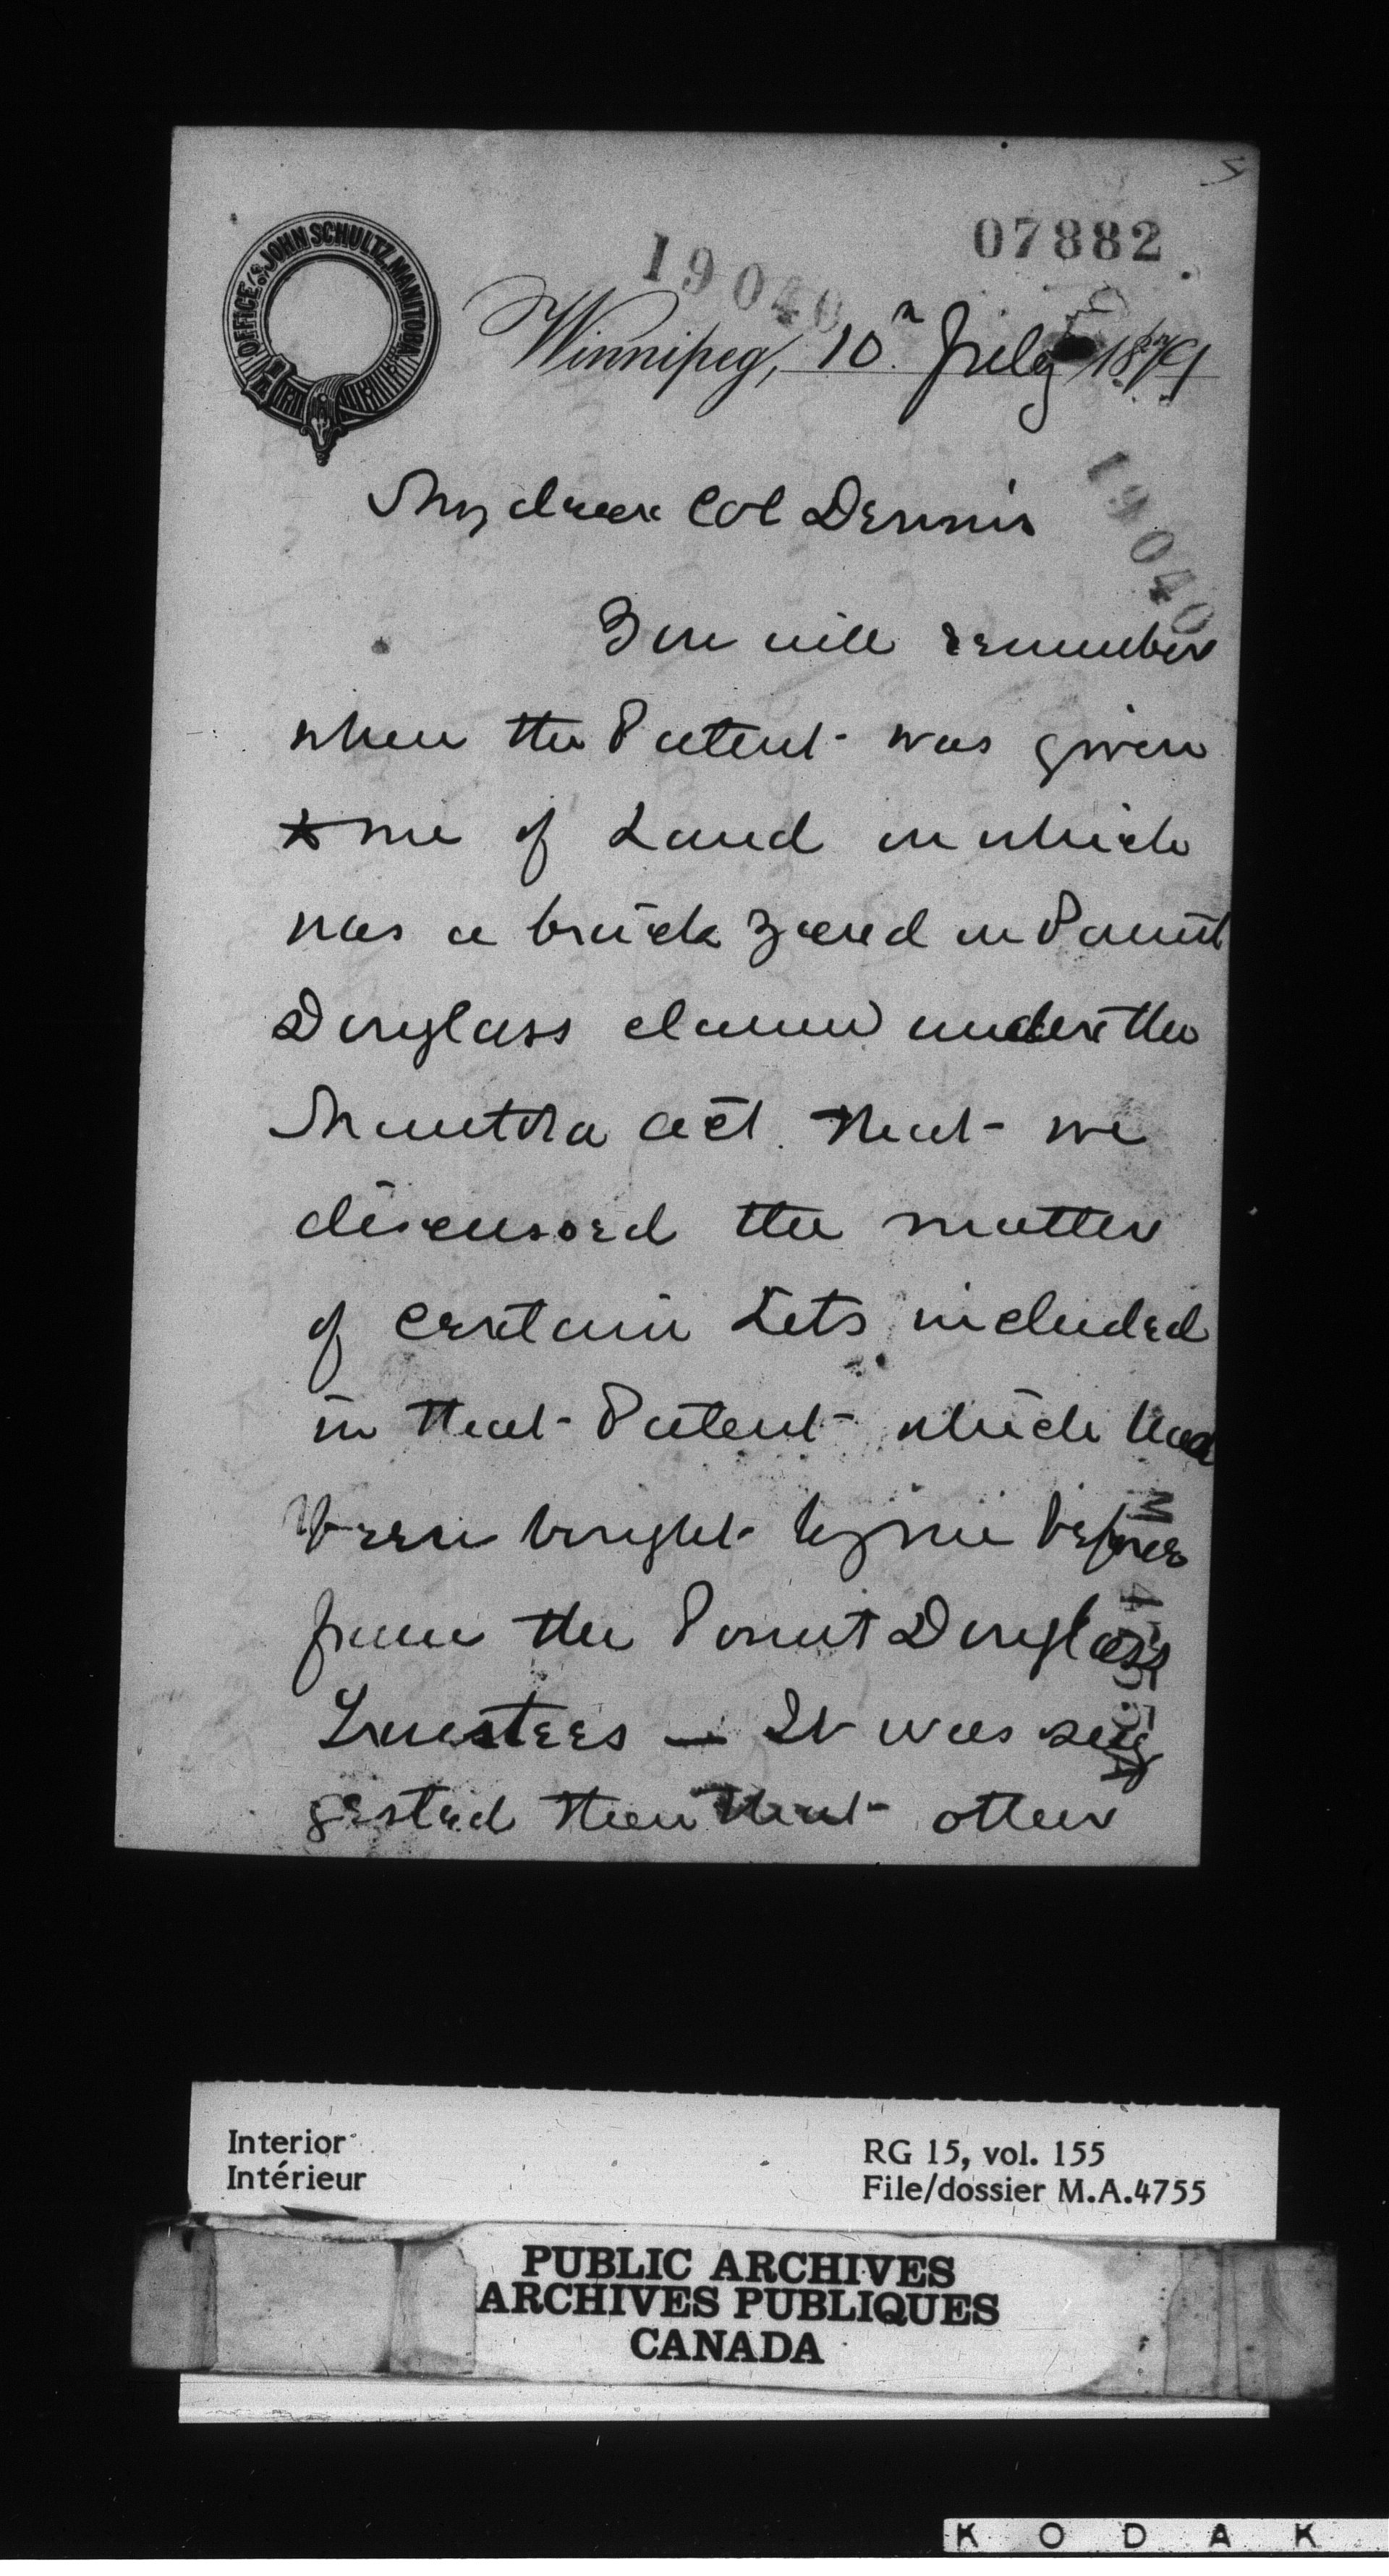 OFFICE OF JOHN SCHULTZ, MANITOBA
07882
19040
Winnipeg, 10th July 1879
19040
My dear Col Dennis
You will remember
when the Patent was given
to me of Land on which
was a brick yard in Point
Douglass claimed under the
Manitoba Act. that we
discussed the matter
of certain Lots included
in that Patent which had
been bought by me before
from the Point Douglass
Trustees — It was sug
gested then that other
Interior
Intérieur
RG 15, vol. 155
File/dossier M.A.4755
PUBLIC ARCHIVES
ARCHIVES PUBLIQUES
CANADA
KODAK